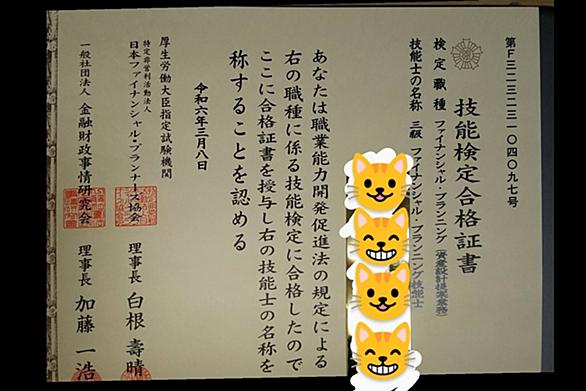 第F三二三二三一〇四〇九七号
技能検定合格証書
検定職種 ファイナンシャル・プランニング(資産設計提案業務)
技能士の名称 三級 ファイナンシャル・プランニング技能士
あなたは職業能力開発促進法の規定による
右の職種に係る技能検定に合格したので
ここに合格証書を授与し右の技能士の名称を
称することを認める
令和六年三月八日
厚生労働大臣指定試験機関
特定非営利活動法人
日本ファイナンシャル・プランナーズ協会 理事長 白根壽晴
一般社団法人 金融財政事情研究会 理事長 加藤一浩